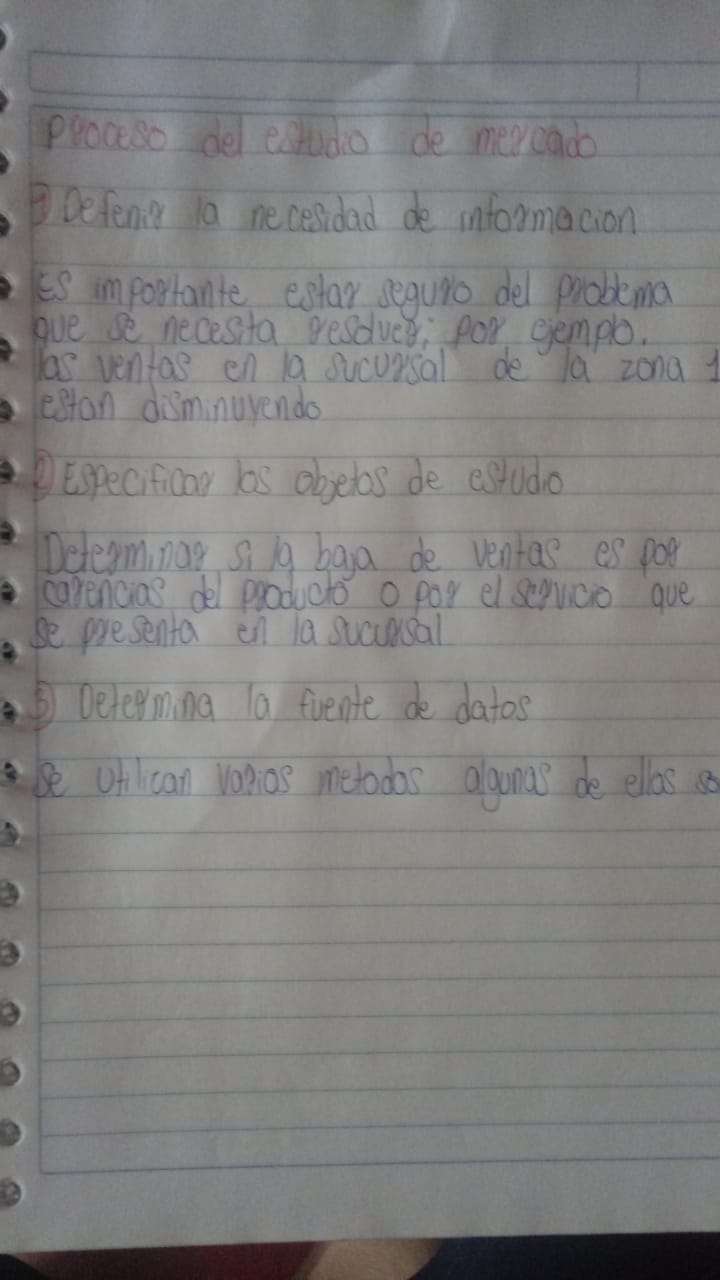 Proceso del estudio de mercado
1) Defenir la necesidad de informacion
Es importante estar seguro del problema
que se necesita resolver; por ejemplo.
las ventas en la sucursal de la zona 1
estan disminuyendo
2) Especificar los objetos de estudio
Determinar si la baja de ventas es por
carencias del producto o por el servicio que
se presenta en la sucursal
3) Determina la fuente de datos
Se utilican varios metodos algunas de ellas so